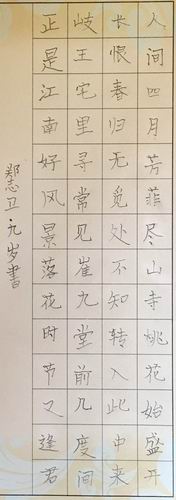 人间四月芳菲尽山寺桃花始盛开
长恨春归无觅处不知转入此中来
岐王宅里寻常见崔九堂前几度闻
正是江南好风景落花时节又逢君
郑志卫·九岁書